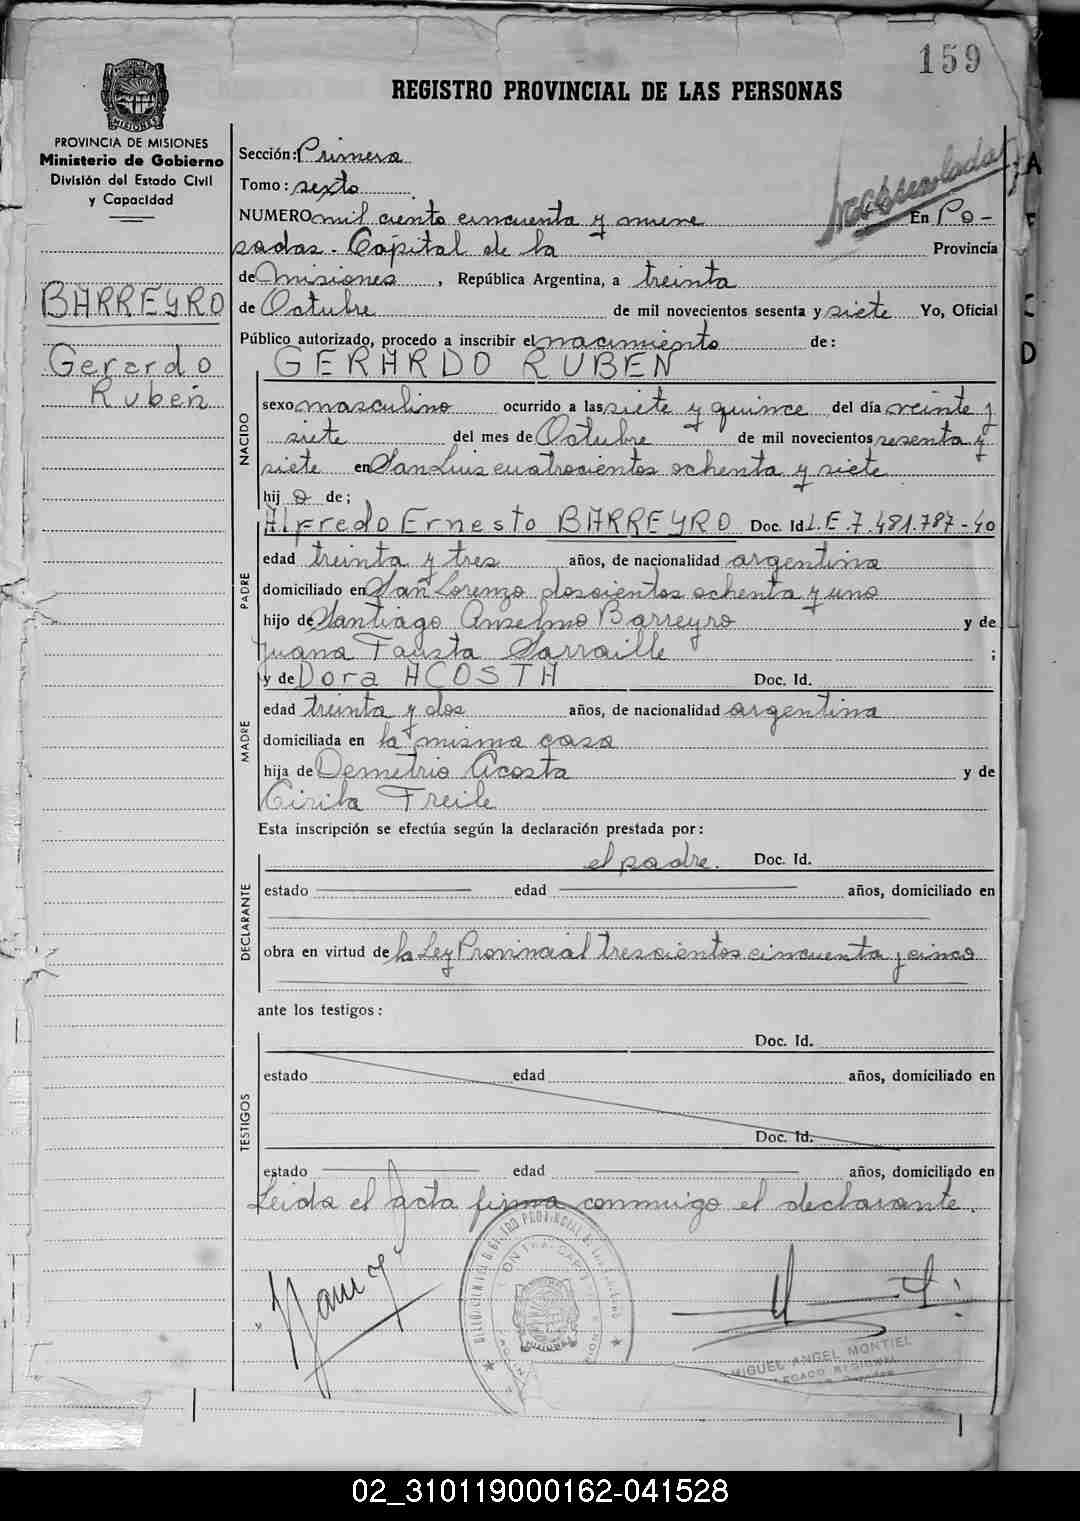 159
REGISTRO PROVINCIAL DE LAS PERSONAS
PROVINCIA DE MISIONES
Ministerio de Gobierno
División del Estado Civil
y Capacidad
BARREYRO
Gerardo
Ruben
Sección: Primera
Tomo: sexto
NUMERO mil ciento cincuenta y nueve En Po-
sadas - Capital de la Provincia
de Misiones, República Argentina, a treinta
de Octubre de mil novecientos sesenta y siete Yo, Oficial
Público autorizado, procedo a inscribir el nacimiento de:
GERARDO RUBEN
NACIDO
sexo masculino ocurrido a las siete y quince del día veinte y
siete del mes de Octubre de mil novecientos sesenta y
siete en San Luis cuatrocientos ochenta y siete
hijo de;
PADRE
Alfredo Ernesto BARREYRO Doc. Id. L.E.7.481.787-40
edad treinta y tres años, de nacionalidad argentina
domiciliado en San Lorenzo doscientos ochenta y uno
hijo de Santiago Anselmo Barreyro y de
Juana Fausta Sarraille ;
y de Dora ACOSTA Doc. Id.
MADRE
edad treinta y dos años, de nacionalidad argentina
domiciliada en la misma casa
hija de Demetrio Acosta y de
Cirila Freile
Esta inscripción se efectúa según la declaración prestada por:
DECLARANTE
el padre. Doc. Id.
estado edad años, domiciliado en
obra en virtud de la Ley Provincial trescientos cincuenta y cinco
ante los testigos:
TESTIGOS
Doc. Id.
estado edad años, domiciliado en
Doc. Id.
estado edad años, domiciliado en
Leida el acta firma conmigo el declarante.
MISIONES
MIGUEL ANGEL MONTIEL
02_310119000162-041528